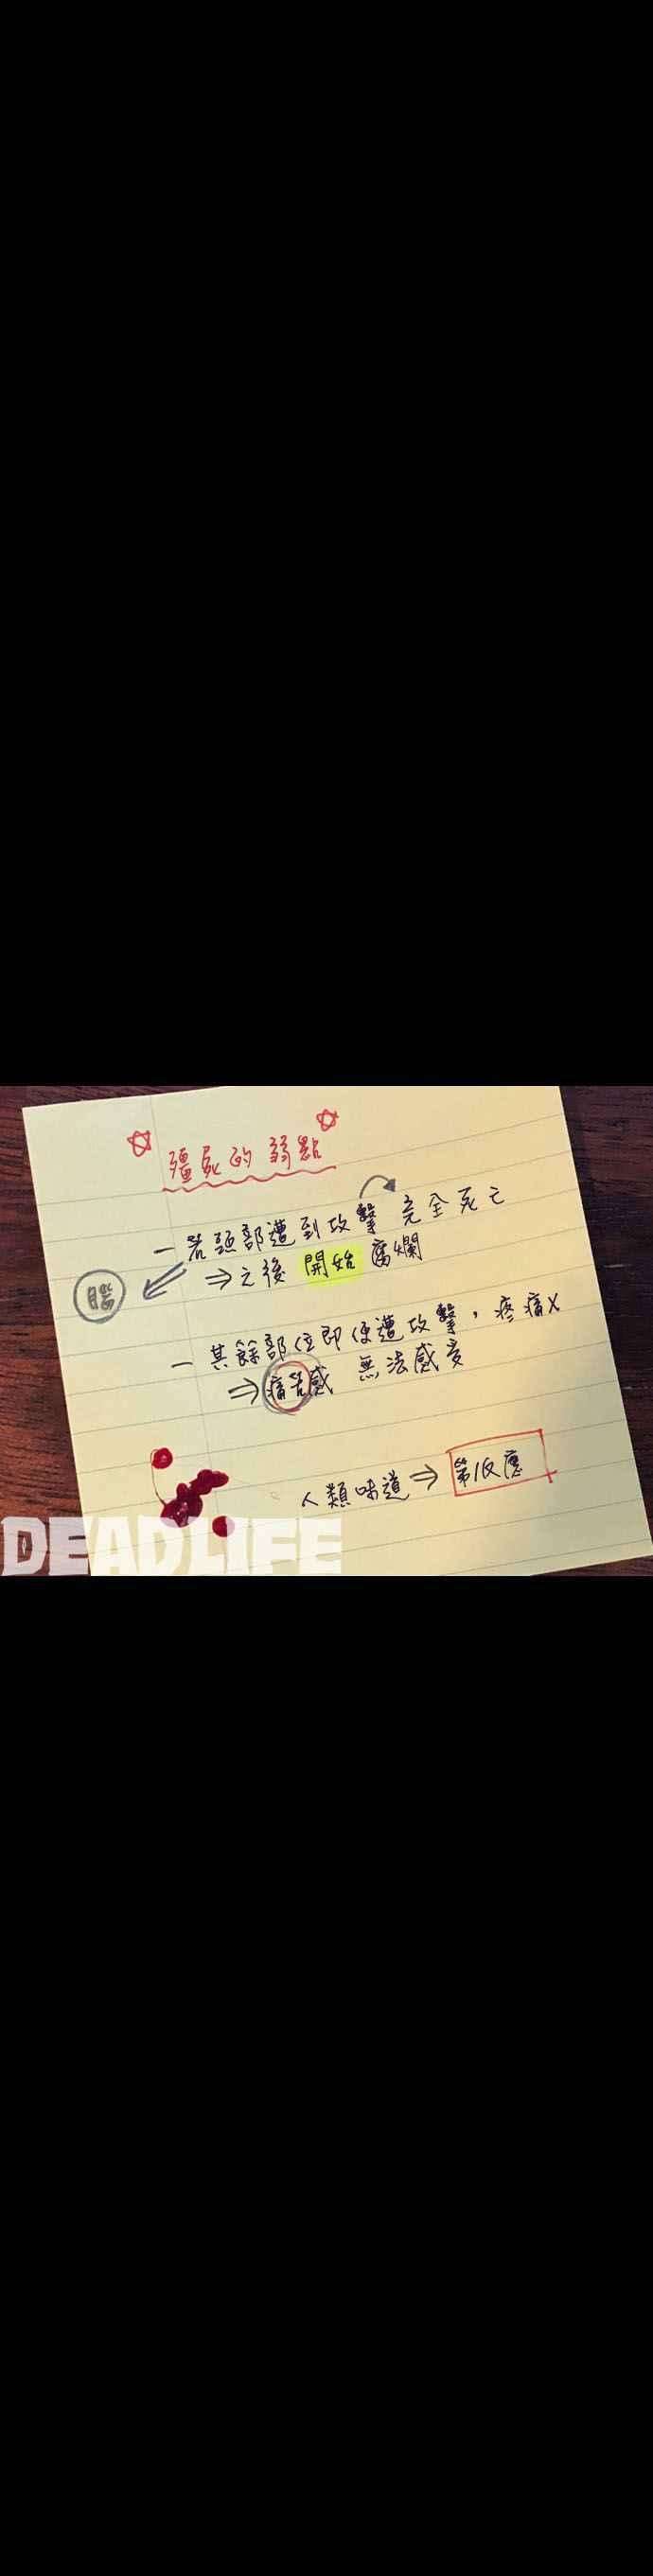 ☆ 殭屍的弱點 ☆
- 若頭部遭到攻擊 完全死亡
⇒ 之後 開始 腐爛
腦
- 其餘部位即便遭攻擊，疼痛X
⇒ 痛苦感 無法感受
人類味道 ⇒
DEADLIFE